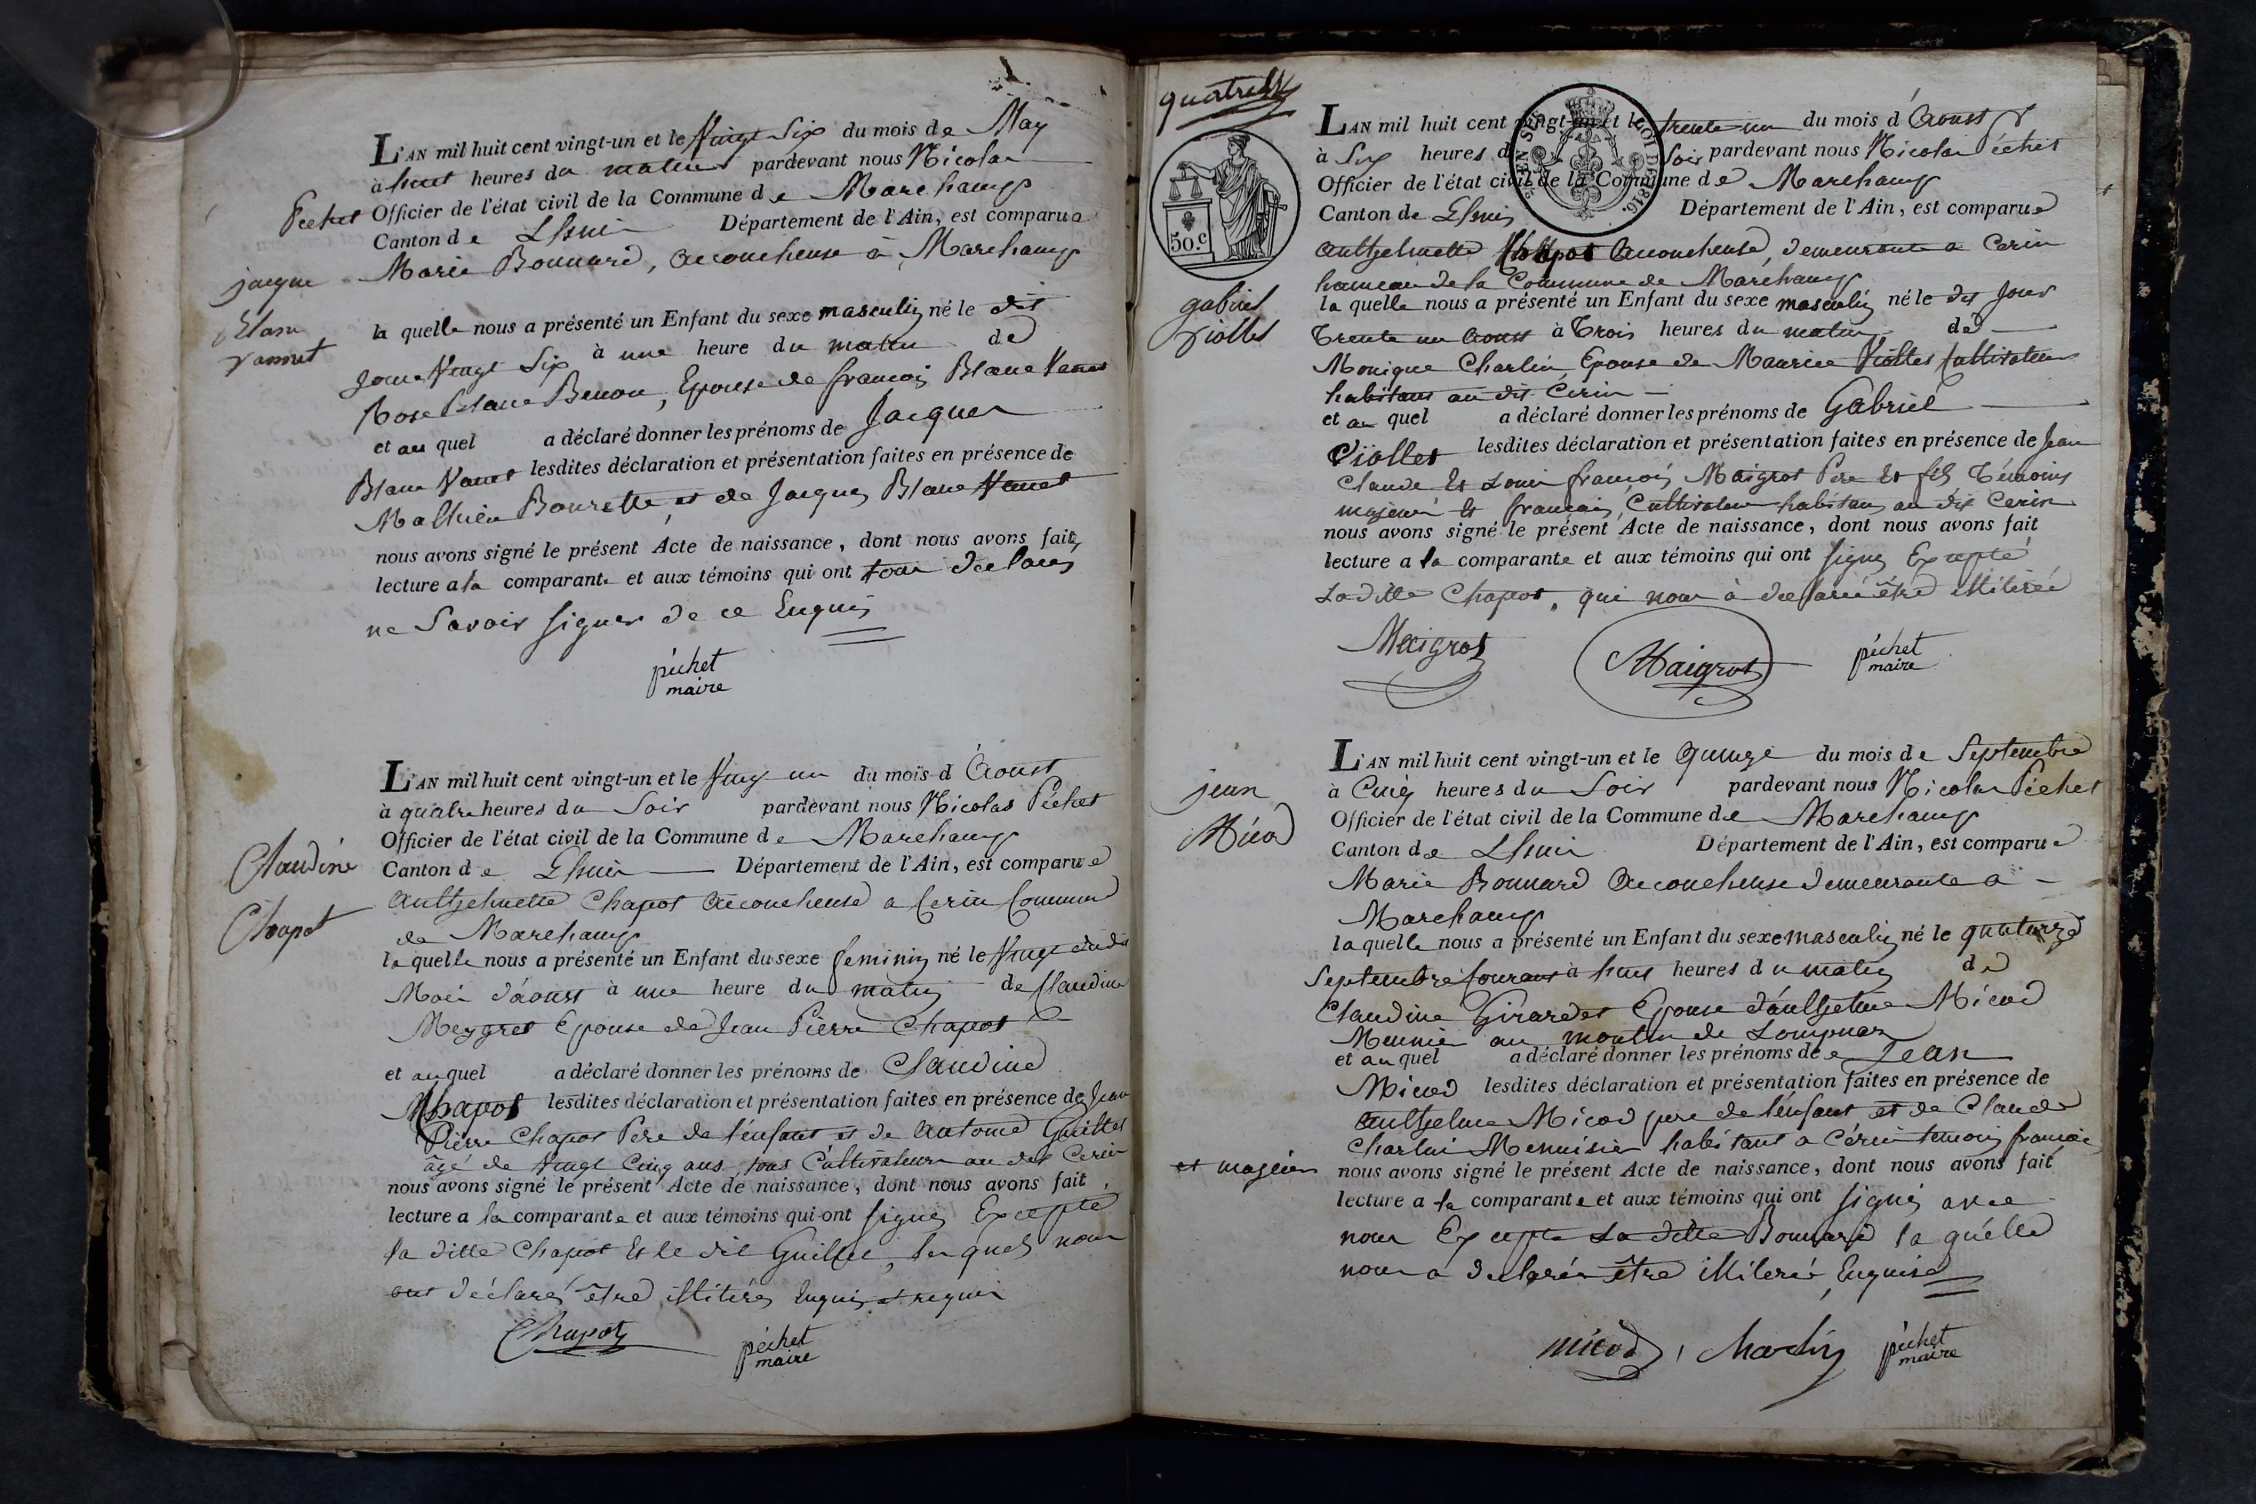 L'AN mil huit cent vingt-un et le Vingt Six du mois de May
à huit heures du matin pardevant nous Nicolas
Péchet Officier de l'état civil de la Commune de Marchamp
Canton de Lhuis Département de l'Ain, est comparue
Marie Bonnard, acoucheuse à Marchamp
jacque
Blanc
vannet
la quelle nous a présenté un Enfant du sexe masculin né le dit
jour Vingt Six à une heure du matin de
Rose Blanc Benon, Epouse de francois Blanc Vanet
et au quel a déclaré donner les prénoms de Jacques
Blanc Vanet lesdites déclaration et présentation faites en présence de
Mathieu Bourette, et de Jacques Blanc Vanet
nous avons signé le présent Acte de naissance, dont nous avons fait
lecture a la comparante et aux témoins qui ont tous declaré
ne Savoir signer de ce Enquis
péchet
maire
L'AN mil huit cent vingt-un et le Vingt un du mois d'Aoust
à quatre heures du Soir pardevant nous Nicolas Péchet
Officier de l'état civil de la Commune de Marchamp
Canton de Lhuis Département de l'Ain, est comparue
Claudine
Chapot
Anthelmette Chapot acoucheuse a Cerin Commune
de Marchamp
la quelle nous a présenté un Enfant du sexe feminin né le Vingt dudit
Mois d'aoust à une heure du matin de Claudine
Meygret Epouse de Jean Pierre Chapot
et au quel a déclaré donner les prénoms de Claudine
Chapot lesdites déclaration et présentation faites en présence de Jean
Pierre Chapot Pere de l'enfant et de Antoine Guillet
âgé de Vingt Cinq ans, tous Cultivateurs au dit Cerin
nous avons signé le présent Acte de naissance, dont nous avons fait
lecture a la comparante et aux témoins qui ont signé Excepté
la ditte Chapot Et le dit Guillet, les quels nous
ont déclaré être illitérés Enquis et requis
Chapot péchet
maire
quatre
L'AN mil huit cent vingt-un et le trente un du mois d'Aoust
à Six heures du Soir pardevant nous Nicolas Péchet
Officier de l'état civil de la Commune de Marchamp
Canton de Lhuis Département de l'Ain, est comparue
50.c
LOI DE 1816.
Anthelmette Chapot Acoucheuse, demeurante a Cerin
hameau de la Commune de Marchamp
gabriel
violles
la quelle nous a présenté un Enfant du sexe masculin né le dit Jour
Trente un Aoust à Trois heures du matin de
Monique Charlin Epouse de Maurice Viollet Cultivateur
habitant au dit Cerin
et au quel a déclaré donner les prénoms de Gabriel
Viollet lesdites déclaration et présentation faites en présence de Jean
Claude Et Louis françois Maigrot Pere Et fils Témoins
majeurs Et français, Cultivateurs habitans au dit Cerin
nous avons signé le présent Acte de naissance, dont nous avons fait
lecture a la comparante et aux témoins qui ont signé Excepté
La ditte Chapot, qui nous à declaré être illitérée
Maigrot Maigrot péchet
maire
jean
Micod
L'AN mil huit cent vingt-un et le Quinze du mois de Septembre
à Cinq heures du Soir pardevant nous Nicolas Péchet
Officier de l'état civil de la Commune de Marchamp
Canton de Lhuis Département de l'Ain, est comparue
Marie Bonnard Acoucheuse demeurante a
Marchamp
la quelle nous a présenté un Enfant du sexe masculin né le quatorze
Septembre Courant à huit heures du matin de
Claudine Girardet Epouse d'anthelme Micod
Meunier au moulin de Lompnaz
et au quel a déclaré donner les prénoms de Jean
Micod lesdites déclaration et présentation faites en présence de
Anthelme Micod pere de l'énfant et de Claude
Charlin Menuisier habitant a Cérin temoins français
et majeurs nous avons signé le présent Acte de naissance, dont nous avons fait
lecture a la comparante et aux témoins qui ont signé avec
nous Excepté La ditte Bonnard la quélle
nous a declaré être illiterée, Enquise
micod, Charlin péchet
maire